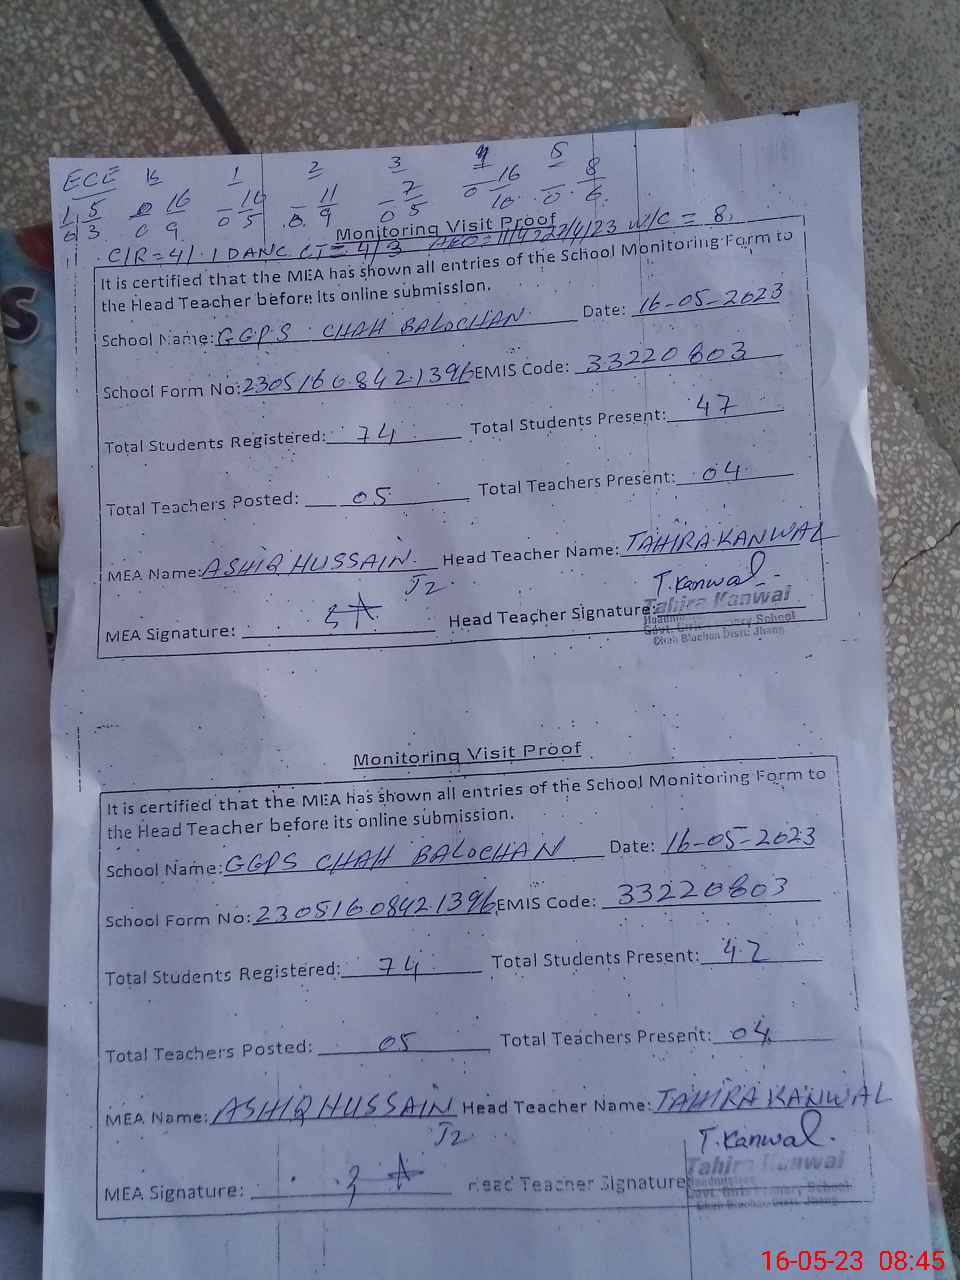 ECE 1 2 3 4 5
5 16 16 11 7 16 8
3 9 0 5 9 0 5 0 10 0 6
Monitoring Visit Proof
C/R = 4/ W/C = 8
It is certified that the MEA has shown all entries of the School Monitoring Form to
the Head Teacher before its online submission.
School Name: GGPS CHAH BALOCHAN Date: 16-05-2023
School Form No: 23051608421396 EMIS Code: 33220803
Total Students Registered: 74 Total Students Present: 47
Total Teachers Posted: 05 Total Teachers Present: 04
MEA Name: ASHIQ HUSSAIN Head Teacher Name: TAHIRA KANWAL
J2 T.Kanwal
MEA Signature: Head Teacher Signature: Tahira Kanwal
Govt. Girls Primary School
Chah Blochan Distt: Jhang
Monitoring Visit Proof
It is certified that the MEA has shown all entries of the School Monitoring Form to
the Head Teacher before its online submission.
School Name: GGPS CHAH BALOCHAN Date: 16-05-2023
School Form No: 23051608421396 EMIS Code: 33220803
Total Students Registered: 74 Total Students Present: 47
Total Teachers Posted: 05 Total Teachers Present: 04
MEA Name: ASHIQ HUSSAIN Head Teacher Name: TAHIRA KANWAL
J2 T.Kanwal.
MEA Signature: Head Teacher Signature Tahira Kanwal
Govt. Girls Primary School
Chah Blochan Distt: Jhang
16-05-23 08:45